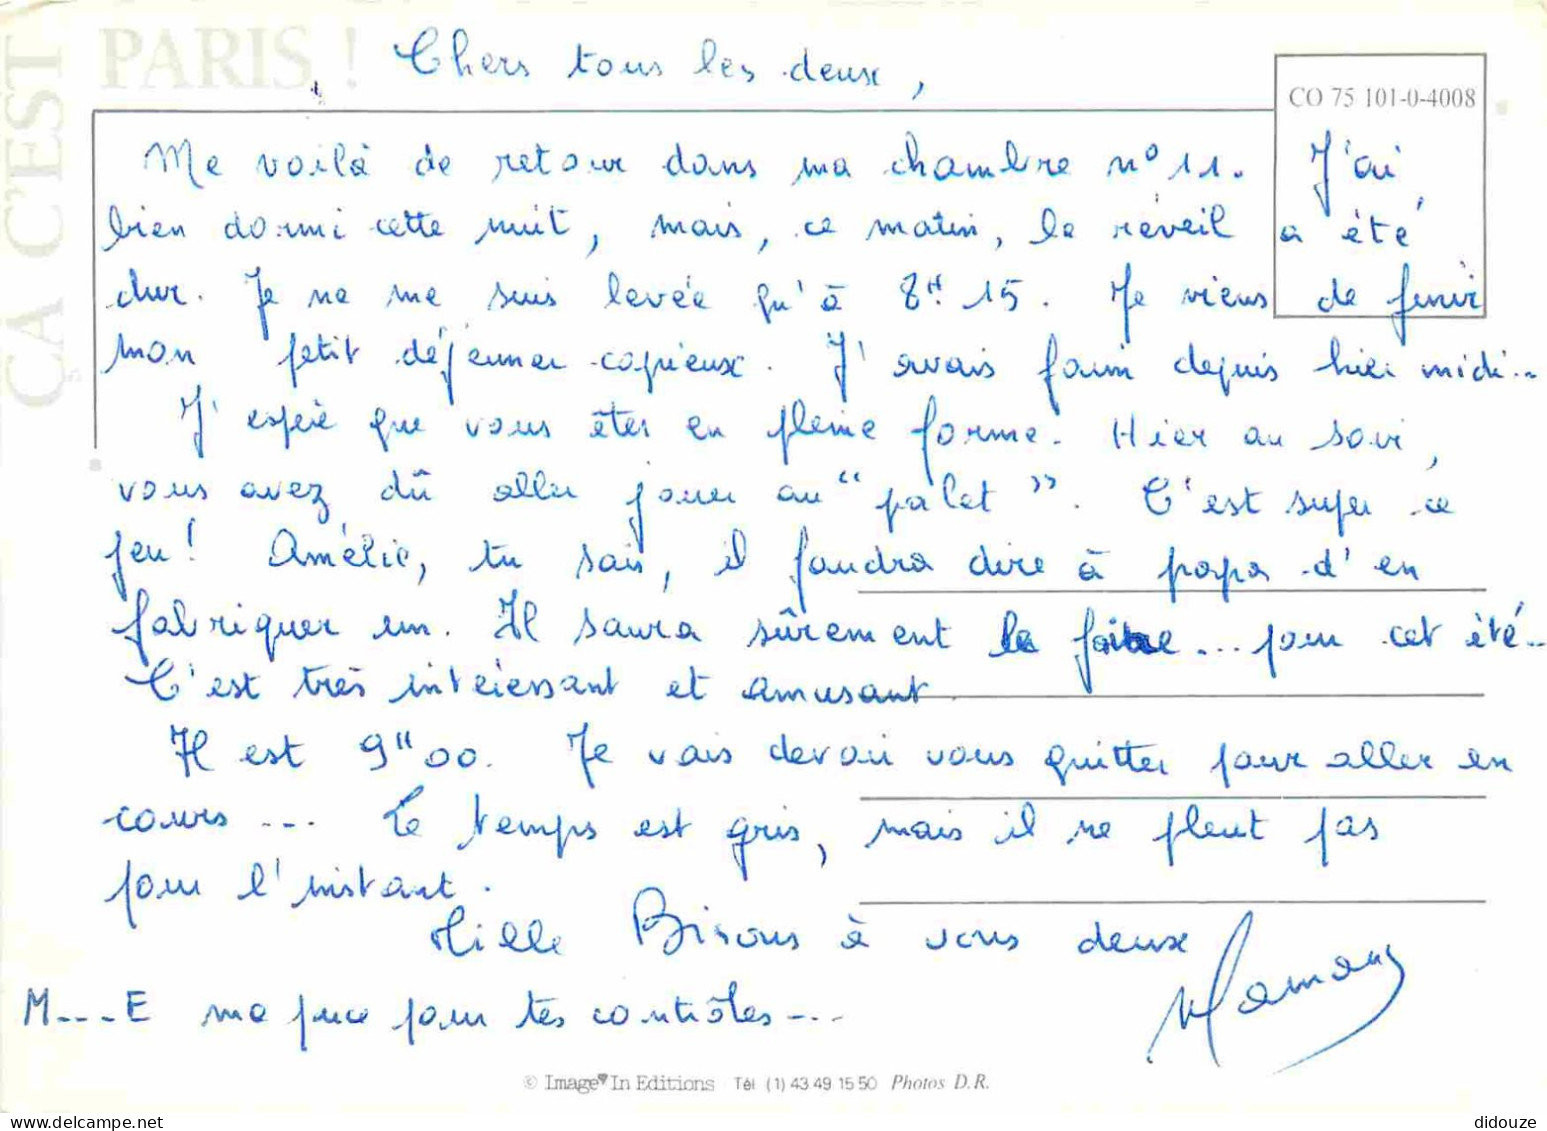 ÇA C'EST
PARIS !
Chers tous les deux,
CO 75 101-0-4008
Me voilà de retour dans ma chambre n° 11. J'ai
bien dormi cette nuit, mais, ce matin, le réveil a été
dur. Je ne me suis levée qu'à 8H 15. Je viens de finir
mon petit déjeuner copieux. J'avais faim depuis hier midi...
J'espère que vous êtes en pleine forme. Hier au soir,
vous avez dû aller jouer au "palet". C'est super ce
jeu! Amélie, tu sais, il faudra dire à papa d'en
fabriquer un. Il saura sûrement le faire... pour cet été...
C'est très intéressant et amusant.
Il est 9H00. Je vais devoir vous quitter pour aller en
cours... Le temps est gris, mais il ne pleut pas
pour l'instant.
Mille Bisous à vous deux
Maman
M----E ma puce pour tes contrôles...
© Image In Editions Tél (1) 43 49 15 50 Photos D.R.
didouze